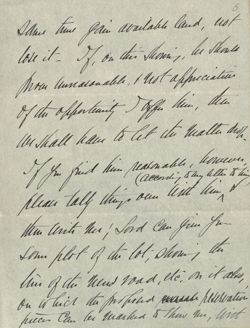 6
same time gain available land, not
lose it - If, on this showing, he should
prove unreasonable, & not appreciative
of the opportunity I offer him, then
we shall have to let the matter
If you find him reasonable, however,
(according to my letter to him)
please talk things over with him &
then write me; Lord can give you
some plot of the lot, showing the
line of the new road, etc, on it also,
on which the proposed reservation
pieces can be marked to show me, with